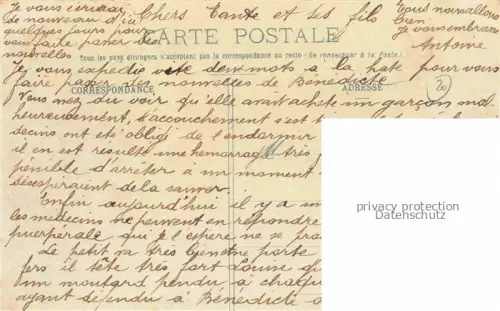 Je vous écrirai
de nouveau d'ici
quelques jours pour
vous faire passer des
nouvelles
Chers Tante et ses fils
Tous nous allons
bien.
Je vous embrasse
Antoine
CARTE POSTALE
Tous les pays étrangers n'acceptent pas la correspondance au recto (Se renseigner à la Poste)
Je vous expédie ces deux mots à la hâte pour vous
faire passer des nouvelles de Bénédicte
CORRESPONDANCE
ADRESSE
20
Vous avez du voir qu'elle avait acheté un garçon mal-
heureusement, l'accouchement s'est
decins ont été obligé de l'endormir
il en est résulté une hemorragie très
pénible d'arrêter à un moment
désespéraient de la sauver.
Enfin aujourd'hui il y a un
les medecins ne peuvent en répondre
puerpérale qui je l'espere ne se
Le petit va très bien
fers il tête très fort
un moutard pendu à chaque
ayant défendu à Bénédicte
privacy protection
Datenschutz